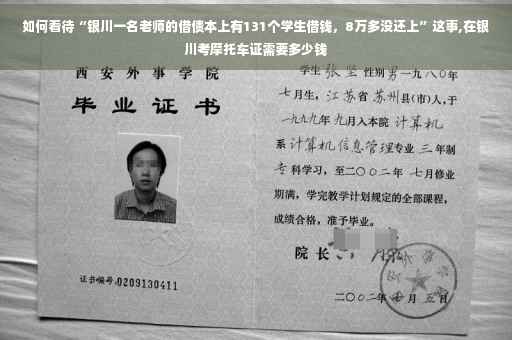 如何看待“银川一名老师的借债本上有131个学生借钱，8万多没还上”这事,在银
川考摩托车证需要多少钱
西安外事学院
毕业证书
证书编号:0209130411
学生 张坚 性别 男 一九八〇年
七月生，江苏省 苏州县(市)人，于
一九九九年九月入本院 计算机
系 计算机信息管理专业 三年制
专科学习，至二〇〇二年 七月修业
期满，学完教学计划规定的全部课程，
成绩合格，准予毕业。
院长
二〇〇二年 月 五日